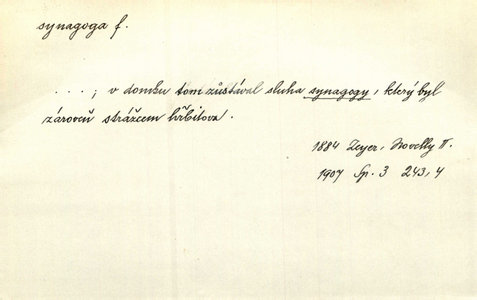 synagoga f.
. . . ; v domku tom zůstával sluha synagogy, který byl
zároveň strážcem hřbitova.
1884 Zeyer, Novelly II.
1907 Sp. 3 243, 4